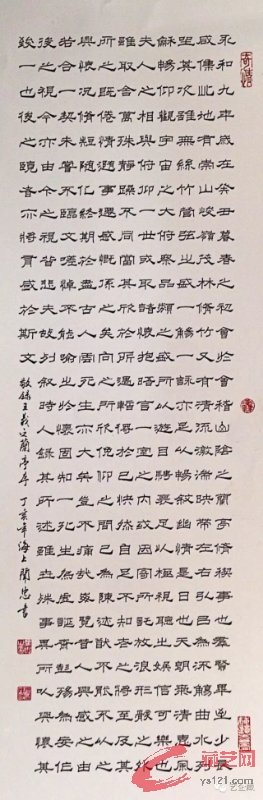 永和九年歲在癸丑暮春之初會於會稽山陰之蘭亭脩禊事也羣賢畢至少長
咸集此地有崇山峻嶺茂林脩竹又有清流激湍映帶左右引以為流觴曲水列
坐其次雖無絲竹管弦之盛一觴一詠亦足以暢敘幽情是日也天朗氣清惠風
和暢仰觀宇宙之大俯察品類之盛所以遊目騁懷足以極視聽之娛信可樂也
夫人之相與俯仰一世或取諸懷抱晤言一室之內或因寄所託放浪形骸之外
雖取舍萬殊靜躁不同當其欣於所遇暫得於己快然自足不知老之將至及其
所之既倦情隨事遷感慨係之矣向之所欣俛仰之間已為陳迹猶不能不以之
興懷況脩短隨化終期於盡古人云死生亦大矣豈不痛哉每覽昔人興感之由
若合一契未嘗不臨文嗟悼不能喻之於懷固知一死生為虛誕齊彭殤為妄作
後之視今亦由今之視昔悲夫故列敘時人錄其所述雖世殊事異所以興懷其
致一也後之覽者亦將有感於斯文 敬錄王羲之蘭亭序 丁亥年海上蘭 書
藏艺网
ys121.com
艺金藏